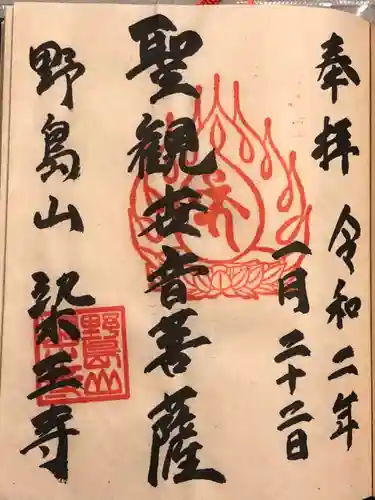 奉拝 令和二年
一月二十二日
聖観世音菩薩
野島山 染王寺
野島山